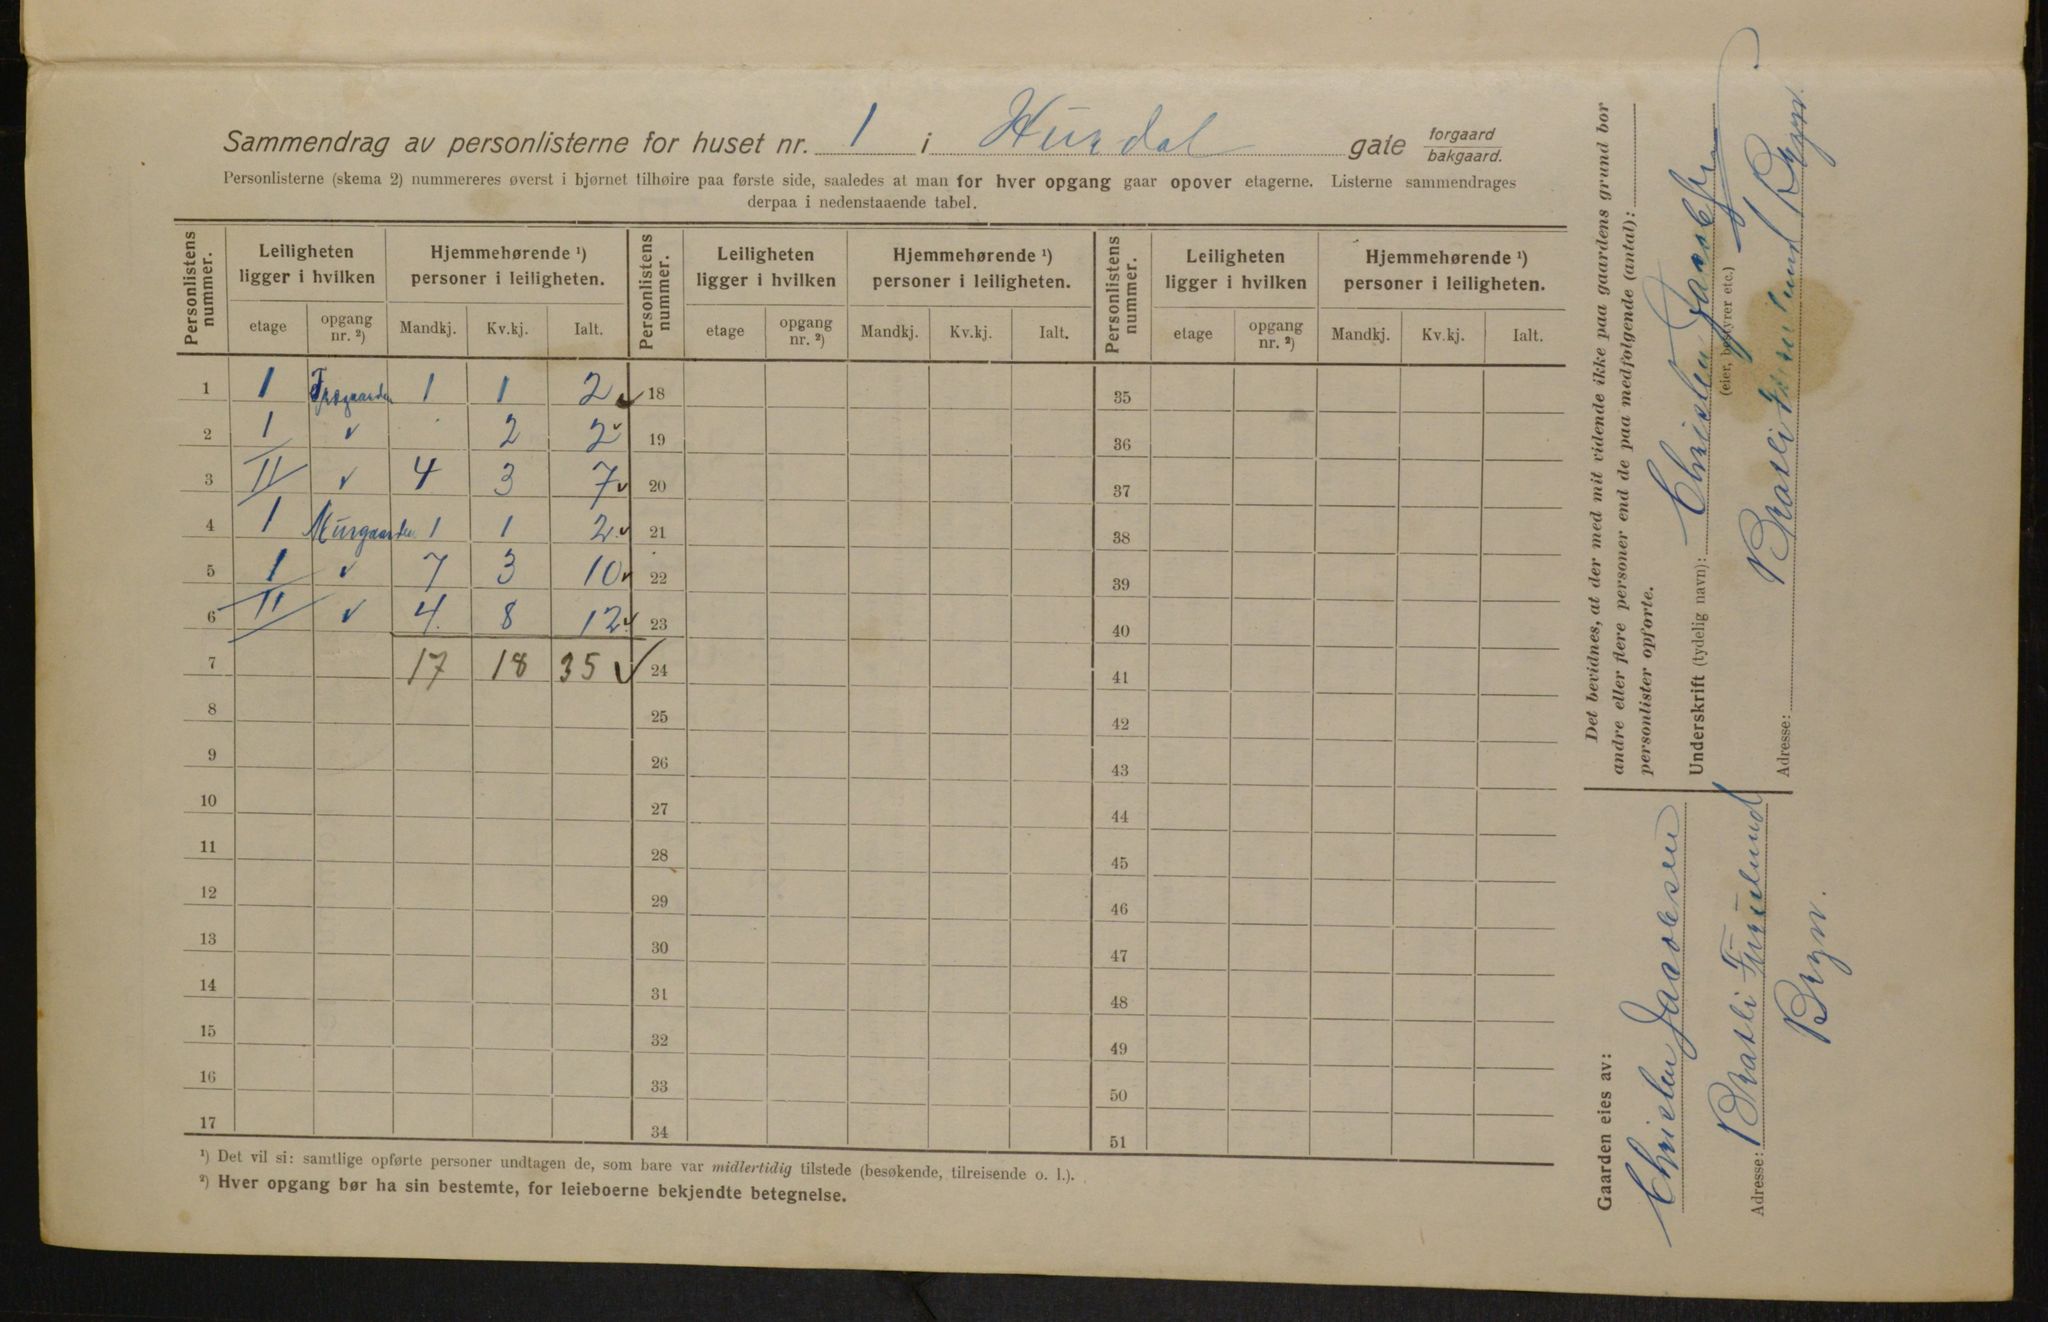 Sammendrag av personlisterne for huset nr. 1 i Hurdal gate forgaard bakgaard.
Personlisterne (skema 2) nummereres øverst i bjørnet tilhøire paa første side, saaledes at man for hver opgang gaar opover etagerne. Listerne sammendrages
derpaa i nedenstaaende tabel.
Personlistens nummer. Leiligheten ligger i hvilken Hjemmehørende ¹) personer i leiligheten. Personlistens nummer. Leiligheten ligger i hvilken Hjemmehørende ¹) personer i leiligheten. Personlistens nummer. Leiligheten ligger i hvilken Hjemmehørende ¹) personer i leiligheten.
etage opgang nr. ²) Mandkj. Kv.kj. Ialt. etage opgang nr. ²) Mandkj. Kv.kj. Ialt. etage opgang nr. ²) Mandkj. Kv.kj. Ialt.
1 1 Trægaarden 1 1 2 ✓ 18 35
2 1 ✓ 2 2 ✓ 19 36
3 II ✓ 4 3 7 ✓ 20 37
4 1 Murgaarden 1 1 2 ✓ 21 38
5 1 ✓ 7 3 10 ✓ 22 39
6 II ✓ 4 8 12 ✓ 23 40
7 17 18 35 ✓ 24 41
8 25 42
9 26 43
10 27 44
11 28 45
12 29 46
13 30 47
14 31 48
15 32 49
16 33 50
17 34 51
¹) Det vil si: samtlige opførte personer undtagen de, som bare var midlertidig tilstede (besøkende, tilreisende o. l.).
²) Hver opgang bør ha sin bestemte, for leieboerne bekjendte betegnelse.
Det bevidnes, at der med mit vidende ikke paa gaardens grund bor
andre eller flere personer end de paa medfølgende (antal):
personlister opførte.
Underskrift (tydelig navn): Christen Jacobsen
(eier, bestyrer etc.)
Adresse: Bratli Furulund Bryn.
Gaarden eies av:
Christen Jacobsen
Adresse: Bratli Furulund
Bryn.